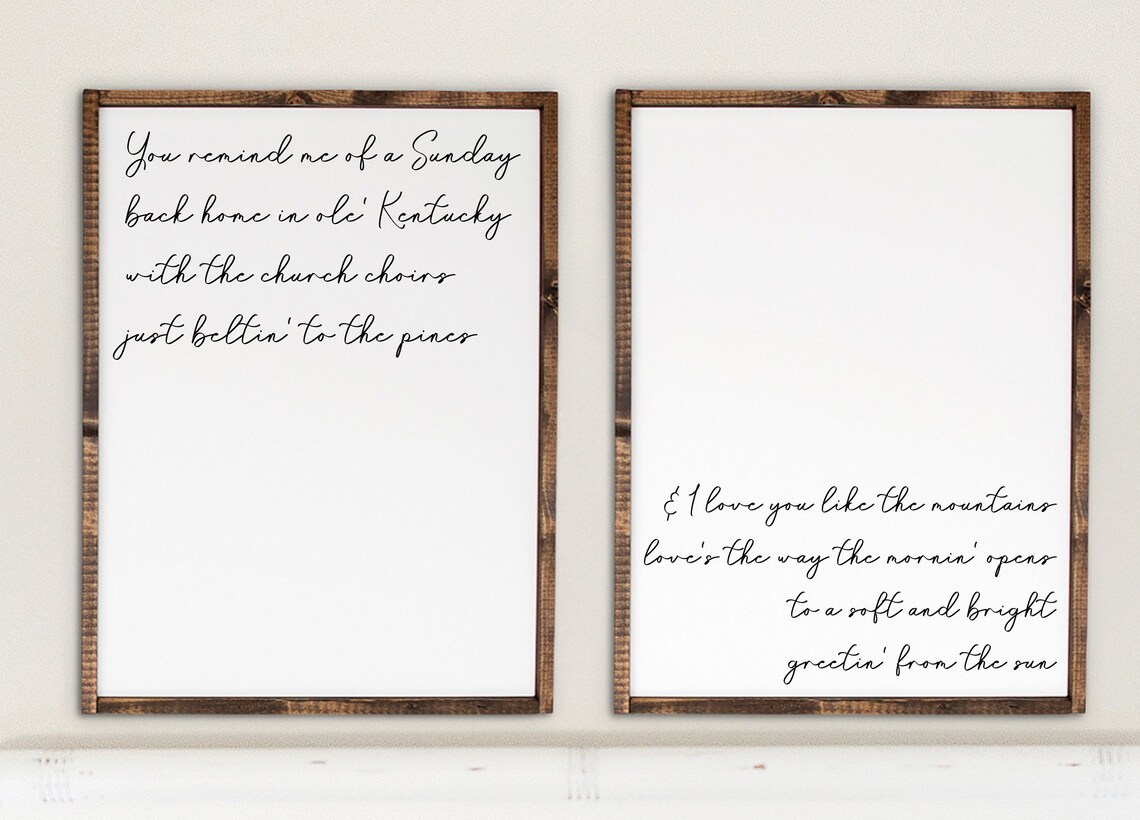 You remind me of a Sunday
back home in ole' Kentucky
with the church choirs
just beltin' to the pines
& I love you like the mountains
love's the way the mornin' opens
to a soft and bright
greetin' from the sun